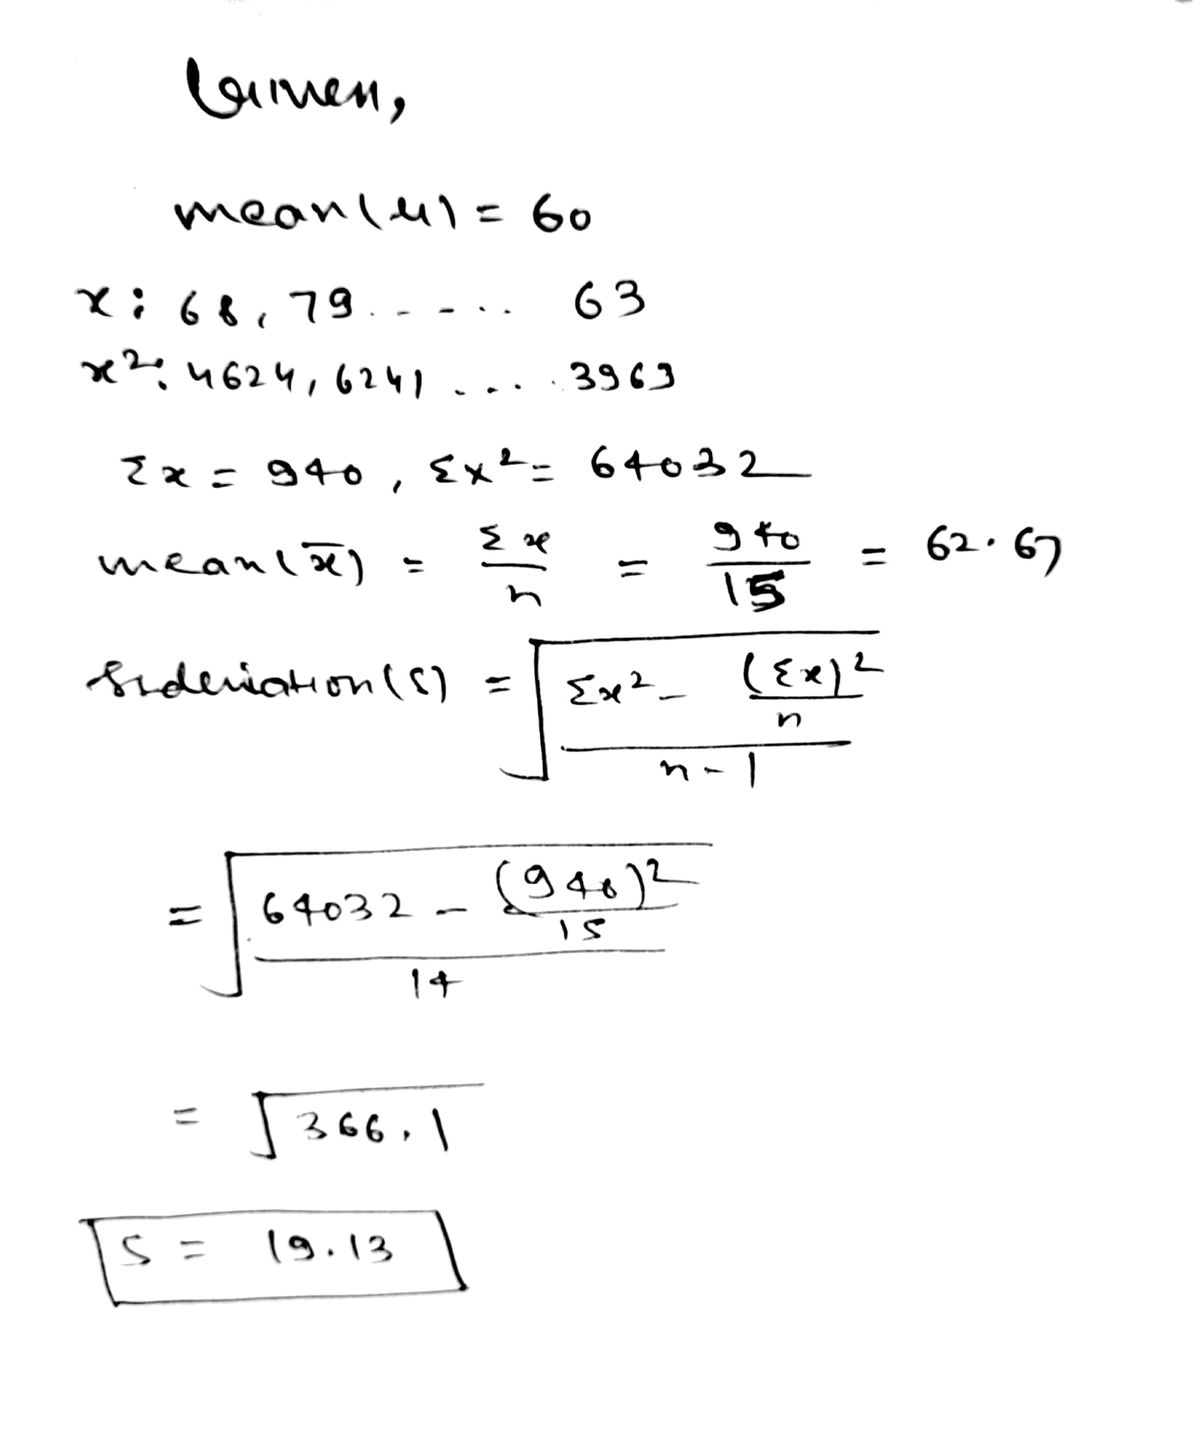 Given,
mean(μ) = 60
x: 68, 79...... 63
x²: 4624, 6241 .... 3963
Σx = 940, Σx² = 64032
mean(x̄) = Σx/n = 940/15 = 62.67
Stdeviation(S) = √((Σx² - (Σx)²/n)/(n-1))
= √((64032 - (940)²/15)/14)
= √366.1
S = 19.13